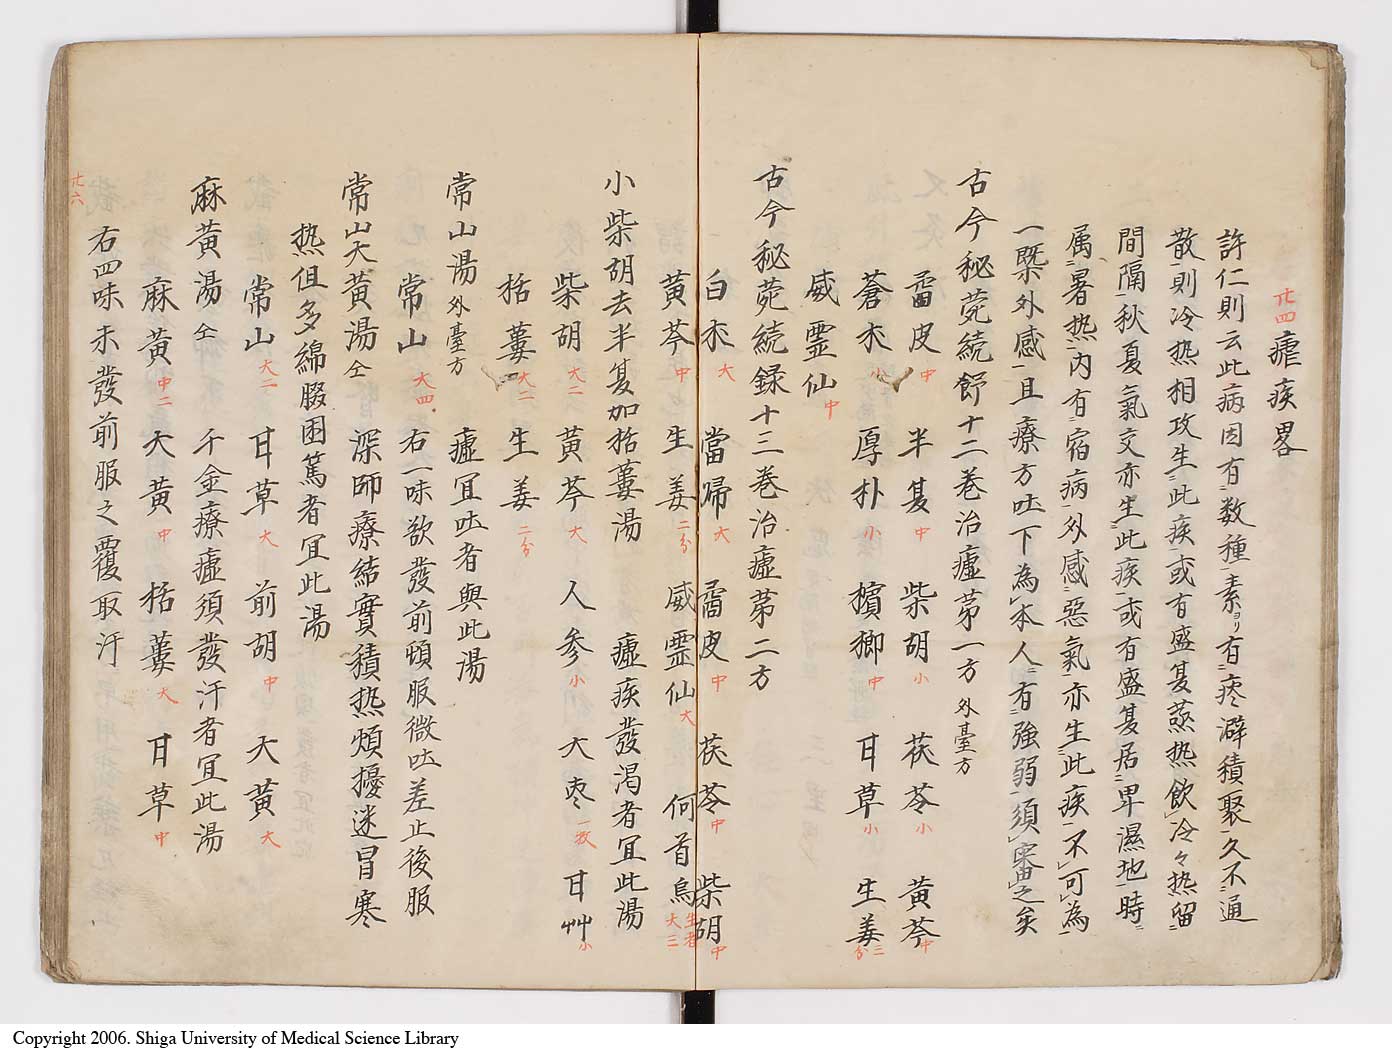 廿四 瘧疾畧
許仁則云此病因有数種素ヨリ有疼澼積聚久不通
散則冷热相攻生此疾或有盛夏蒸热飲冷々热留
間隔秋夏氣交亦生此疾或有盛夏居卑濕地時
属暑热内有宿病外感惡氣亦生此疾不可為
一槩外感且療方吐下為本人有強弱須審之矣
古今秘菀続舒十二巻治瘧苐一方 外臺方
霤皮中 半夏中 柴胡小 茯苓小 黄芩中
蒼朮小 厚朴小 檳榔中 甘草小 生姜三分
威霊仙中
古今秘菀続録十三巻治瘧苐二方
白朮大 當帰大 霤皮中 茯苓中 柴胡中
黄芩中 生姜二分 威霊仙大 何首烏生者大三
小柴胡去半夏加括蔞湯 瘧疾發渇者冝此湯
柴胡大二 黄芩大 人参小 大枣一枚 甘艸小
括蔞大二 生姜二分
常山湯外臺方 瘧冝吐者與此湯
常山大四 右一味欲發前頓服微吐差止後服
常山大黄湯仝 深師療結實積热煩擾迷冒寒
热但多綿腏困篤者冝此湯
常山大二 甘草大 前胡中 大黄大
麻黄湯仝 千金療瘧須發汗者冝此湯
麻黄中二 大黄中 括蔞大 甘草中
右四味未發前服之覆取汗
廿六
Copyright 2006. Shiga University of Medical Science Library